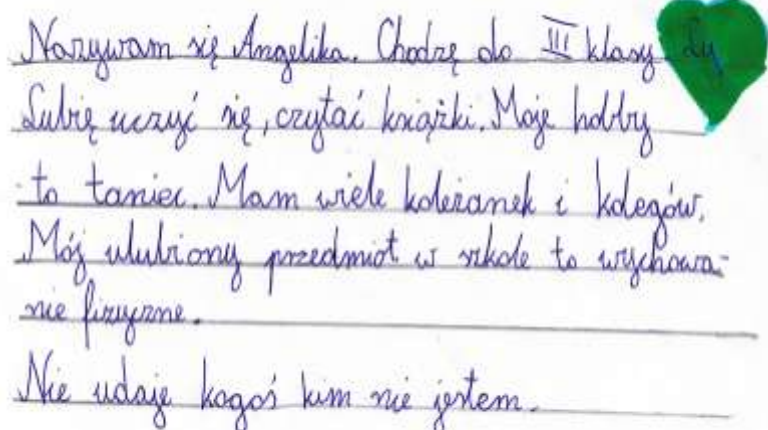 Nazywam się Angelika. Chodzę do III klasy
Lubię uczyć się, czytać książki. Moje hobby
to taniec. Mam wiele koleżanek i kolegów.
Mój ulubiony przedmiot w szkole to wychowa-
nie fizyczne.
Nie udaję kogoś kim nie jestem.